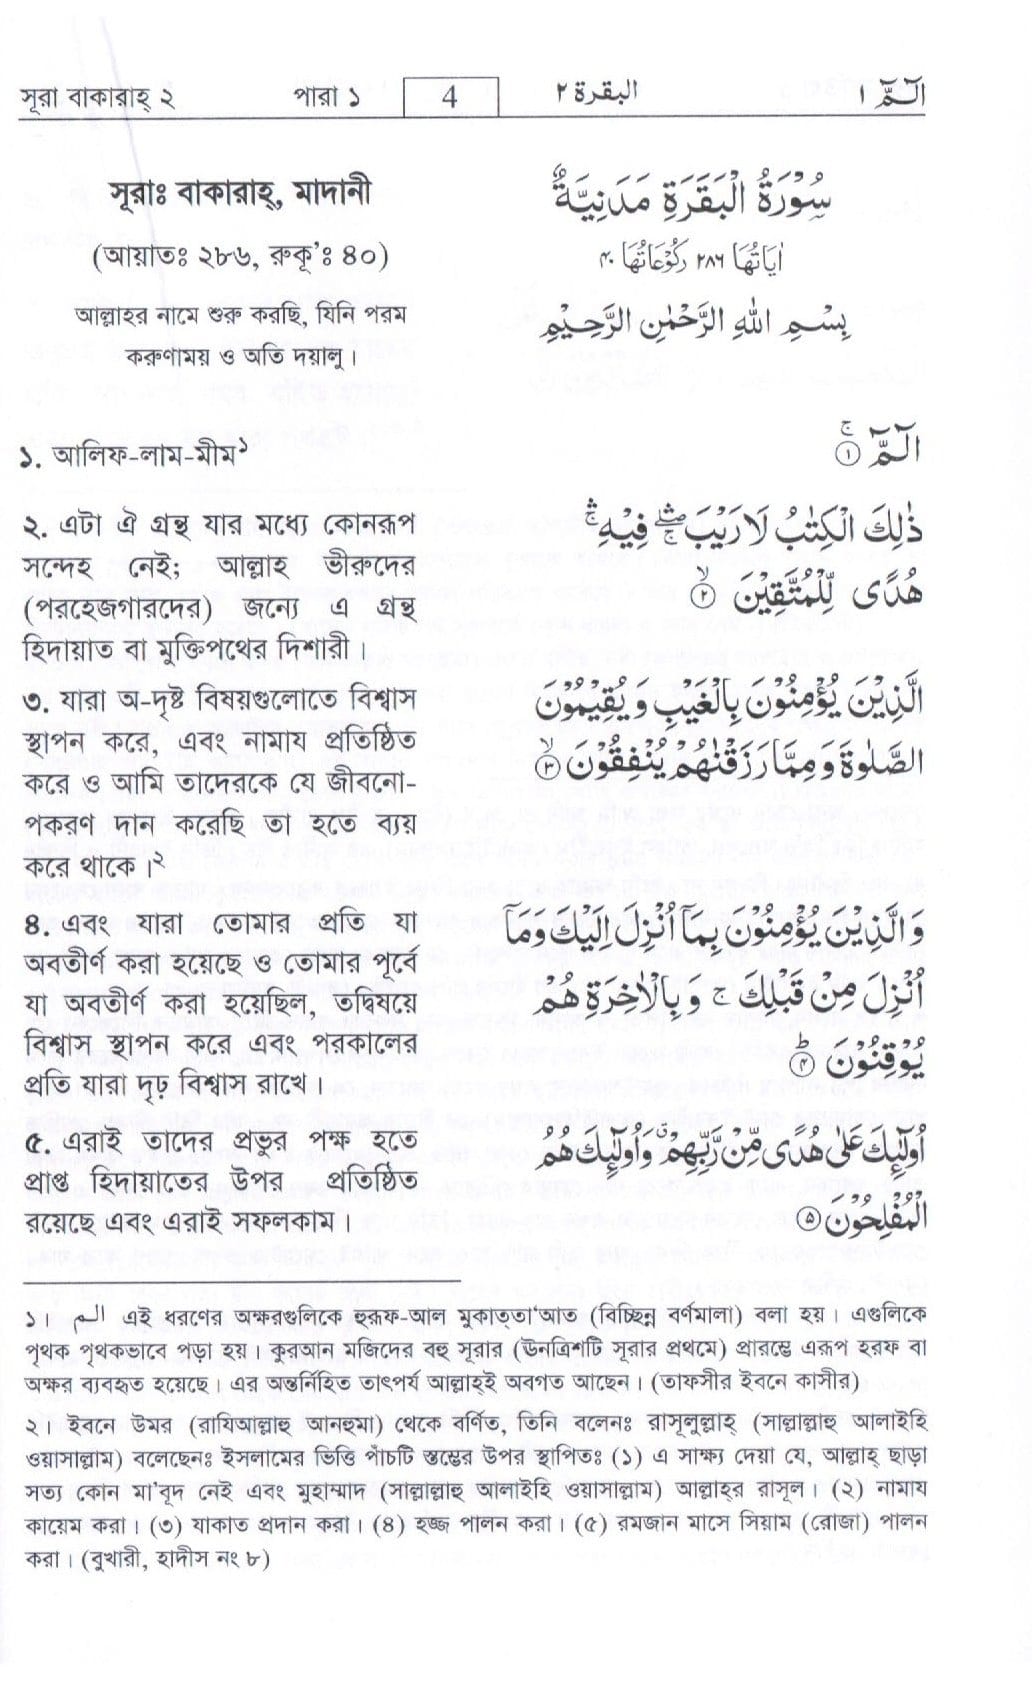 সূরা বাকারাহ্ ২ পারা ১ 4 البقرة ٢ الٓمّٓ ١
সূরাঃ বাকারাহ্, মাদানী
(আয়াতঃ ২৮৬, রুকূ'ঃ ৪০)
আল্লাহর নামে শুরু করছি, যিনি পরম
করুণাময় ও অতি দয়ালু।
১. আলিফ-লাম-মীম১
২. এটা ঐ গ্রন্থ যার মধ্যে কোনরূপ
সন্দেহ নেই; আল্লাহ ভীরুদের
(পরহেজগারদের) জন্যে এ গ্রন্থ
হিদায়াত বা মুক্তিপথের দিশারী।
৩. যারা অ-দৃষ্ট বিষয়গুলোতে বিশ্বাস
স্থাপন করে, এবং নামায প্রতিষ্ঠিত
করে ও আমি তাদেরকে যে জীবনো-
পকরণ দান করেছি তা হতে ব্যয়
করে থাকে।২
৪. এবং যারা তোমার প্রতি যা
অবতীর্ণ করা হয়েছে ও তোমার পূর্বে
যা অবতীর্ণ করা হয়েছিল, তদ্বিষয়ে
বিশ্বাস স্থাপন করে এবং পরকালের
প্রতি যারা দৃঢ় বিশ্বাস রাখে।
৫. এরাই তাদের প্রভুর পক্ষ হতে
প্রাপ্ত হিদায়াতের উপর প্রতিষ্ঠিত
রয়েছে এবং এরাই সফলকাম।
سُوْرَةُ الْبَقَرَةِ مَدَنِيَّةٌ
اٰيَاتُهَا ٢٨٦ رُكُوْعَاتُهَا ٤٠
بِسْمِ اللهِ الرَّحْمٰنِ الرَّحِيْمِ
الٓمّٓ ۚ ١
ذٰلِكَ الْكِتٰبُ لَا رَيْبَ ۛۖۚ فِيْهِ ۛۚ
هُدًى لِّلْمُتَّقِيْنَ ۙ ٢
الَّذِيْنَ يُؤْمِنُوْنَ بِالْغَيْبِ وَيُقِيْمُوْنَ
الصَّلٰوةَ وَمِمَّا رَزَقْنٰهُمْ يُنْفِقُوْنَ ۙ ٣
وَالَّذِيْنَ يُؤْمِنُوْنَ بِمَآ اُنْزِلَ اِلَيْكَ وَمَآ
اُنْزِلَ مِنْ قَبْلِكَ ج وَبِالْاٰخِرَةِ هُمْ
يُوْقِنُوْنَ ؕ ٤
اُولٰٓئِكَ عَلٰى هُدًى مِّنْ رَّبِّهِمْ ۗ وَاُولٰٓئِكَ هُمُ
الْمُفْلِحُوْنَ ٥
১। الم এই ধরণের অক্ষরগুলিকে হুরূফ-আল মুকাত্তা'আত (বিচ্ছিন্ন বর্ণমালা) বলা হয়। এগুলিকে
পৃথক পৃথকভাবে পড়া হয়। কুরআন মজিদের বহু সূরার (ঊনত্রিশটি সূরার প্রথমে) প্রারম্ভে এরূপ হরফ বা
অক্ষর ব্যবহৃত হয়েছে। এর অন্তর্নিহিত তাৎপর্য আল্লাহ্ই অবগত আছেন। (তাফসীর ইবনে কাসীর)
২। ইবনে উমর (রাযিআল্লাহু আনহুমা) থেকে বর্ণিত, তিনি বলেনঃ রাসূলুল্লাহ্ (সাল্লাল্লাহু আলাইহি
ওয়াসাল্লাম) বলেছেনঃ ইসলামের ভিত্তি পাঁচটি স্তম্ভের উপর স্থাপিতঃ (১) এ সাক্ষ্য দেয়া যে, আল্লাহ্ ছাড়া
সত্য কোন মা'বূদ নেই এবং মুহাম্মাদ (সাল্লাল্লাহু আলাইহি ওয়াসাল্লাম) আল্লাহ্‌র রাসূল। (২) নামায
কায়েম করা। (৩) যাকাত প্রদান করা। (৪) হজ্জ পালন করা। (৫) রমজান মাসে সিয়াম (রোজা) পালন
করা। (বুখারী, হাদীস নং ৮)